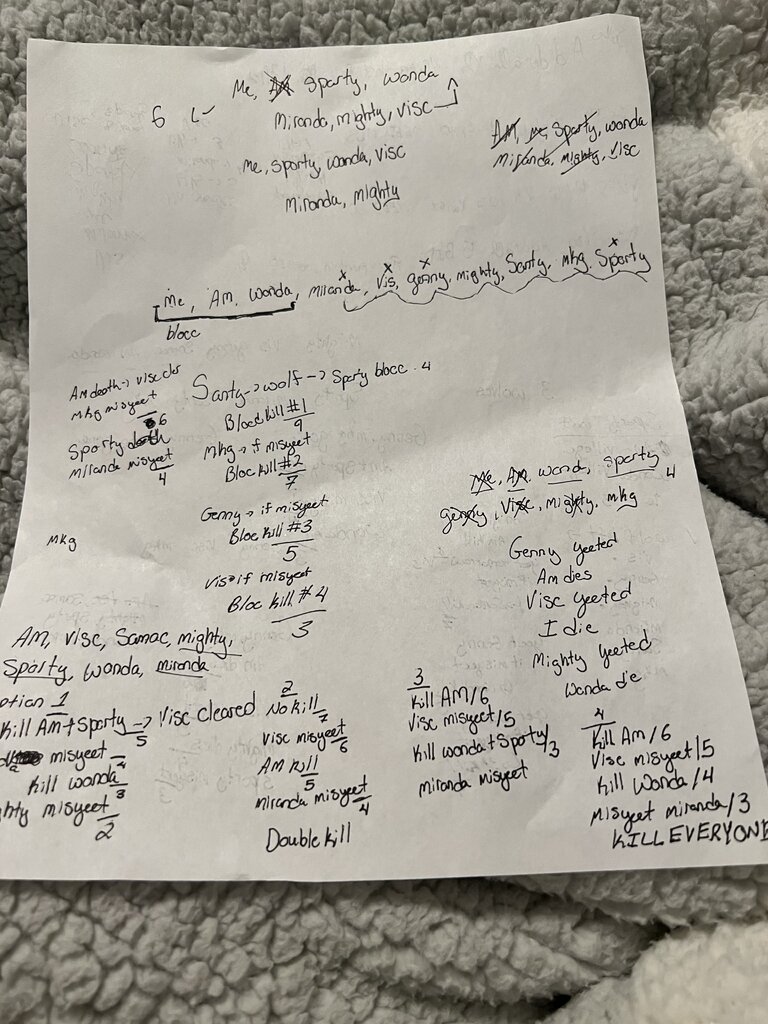 Me, Sparty, wonda
6 L-
Miranda, mighty, visc
Me, sporty, wanda, visc
Miranda, mighty
AM, me, Sparty, wonda
Miranda, mighty, visc
Me, AM, wonda, miranda, Vis, genny, mighty, Santy, mkg, Sporty
blocc
Am death → visc clr
mkg misyeet
6
Sporty death
miranda misyeet
4
Santy → wolf → Sparty blocc. 4
Block kill #1
9
Mkg → if misyeet
Bloc kill #2
7
Genny → if misyeet
Bloc kill #3
5
Vis → if misyeet
Bloc kill #4
3
Mkg
Me, AM, wand, sparty
4
genny, Visc, mighty, mkg
Genny yeeted
Am dies
Visc yeeted
I die
Mighty yeeted
Wanda die
AM, visc, Samac, mighty,
Sparty, wonda, miranda
otion 1
Kill AM + Sparty → Visc cleared
5
misyeet
4
Kill wanda
3
hty misyeet
2
2
No kill
7
Visc misyeet
6
AM kill
5
Miranda misyeet
4
Double kill
3
Kill AM/6
Visc misyeet/5
Kill wonda + Sporty/3
miranda misyeet
4
Kill AM/6
Visc misyeet/5
Kill Wonda/4
Misyeet miranda/3
KILL EVERYONE